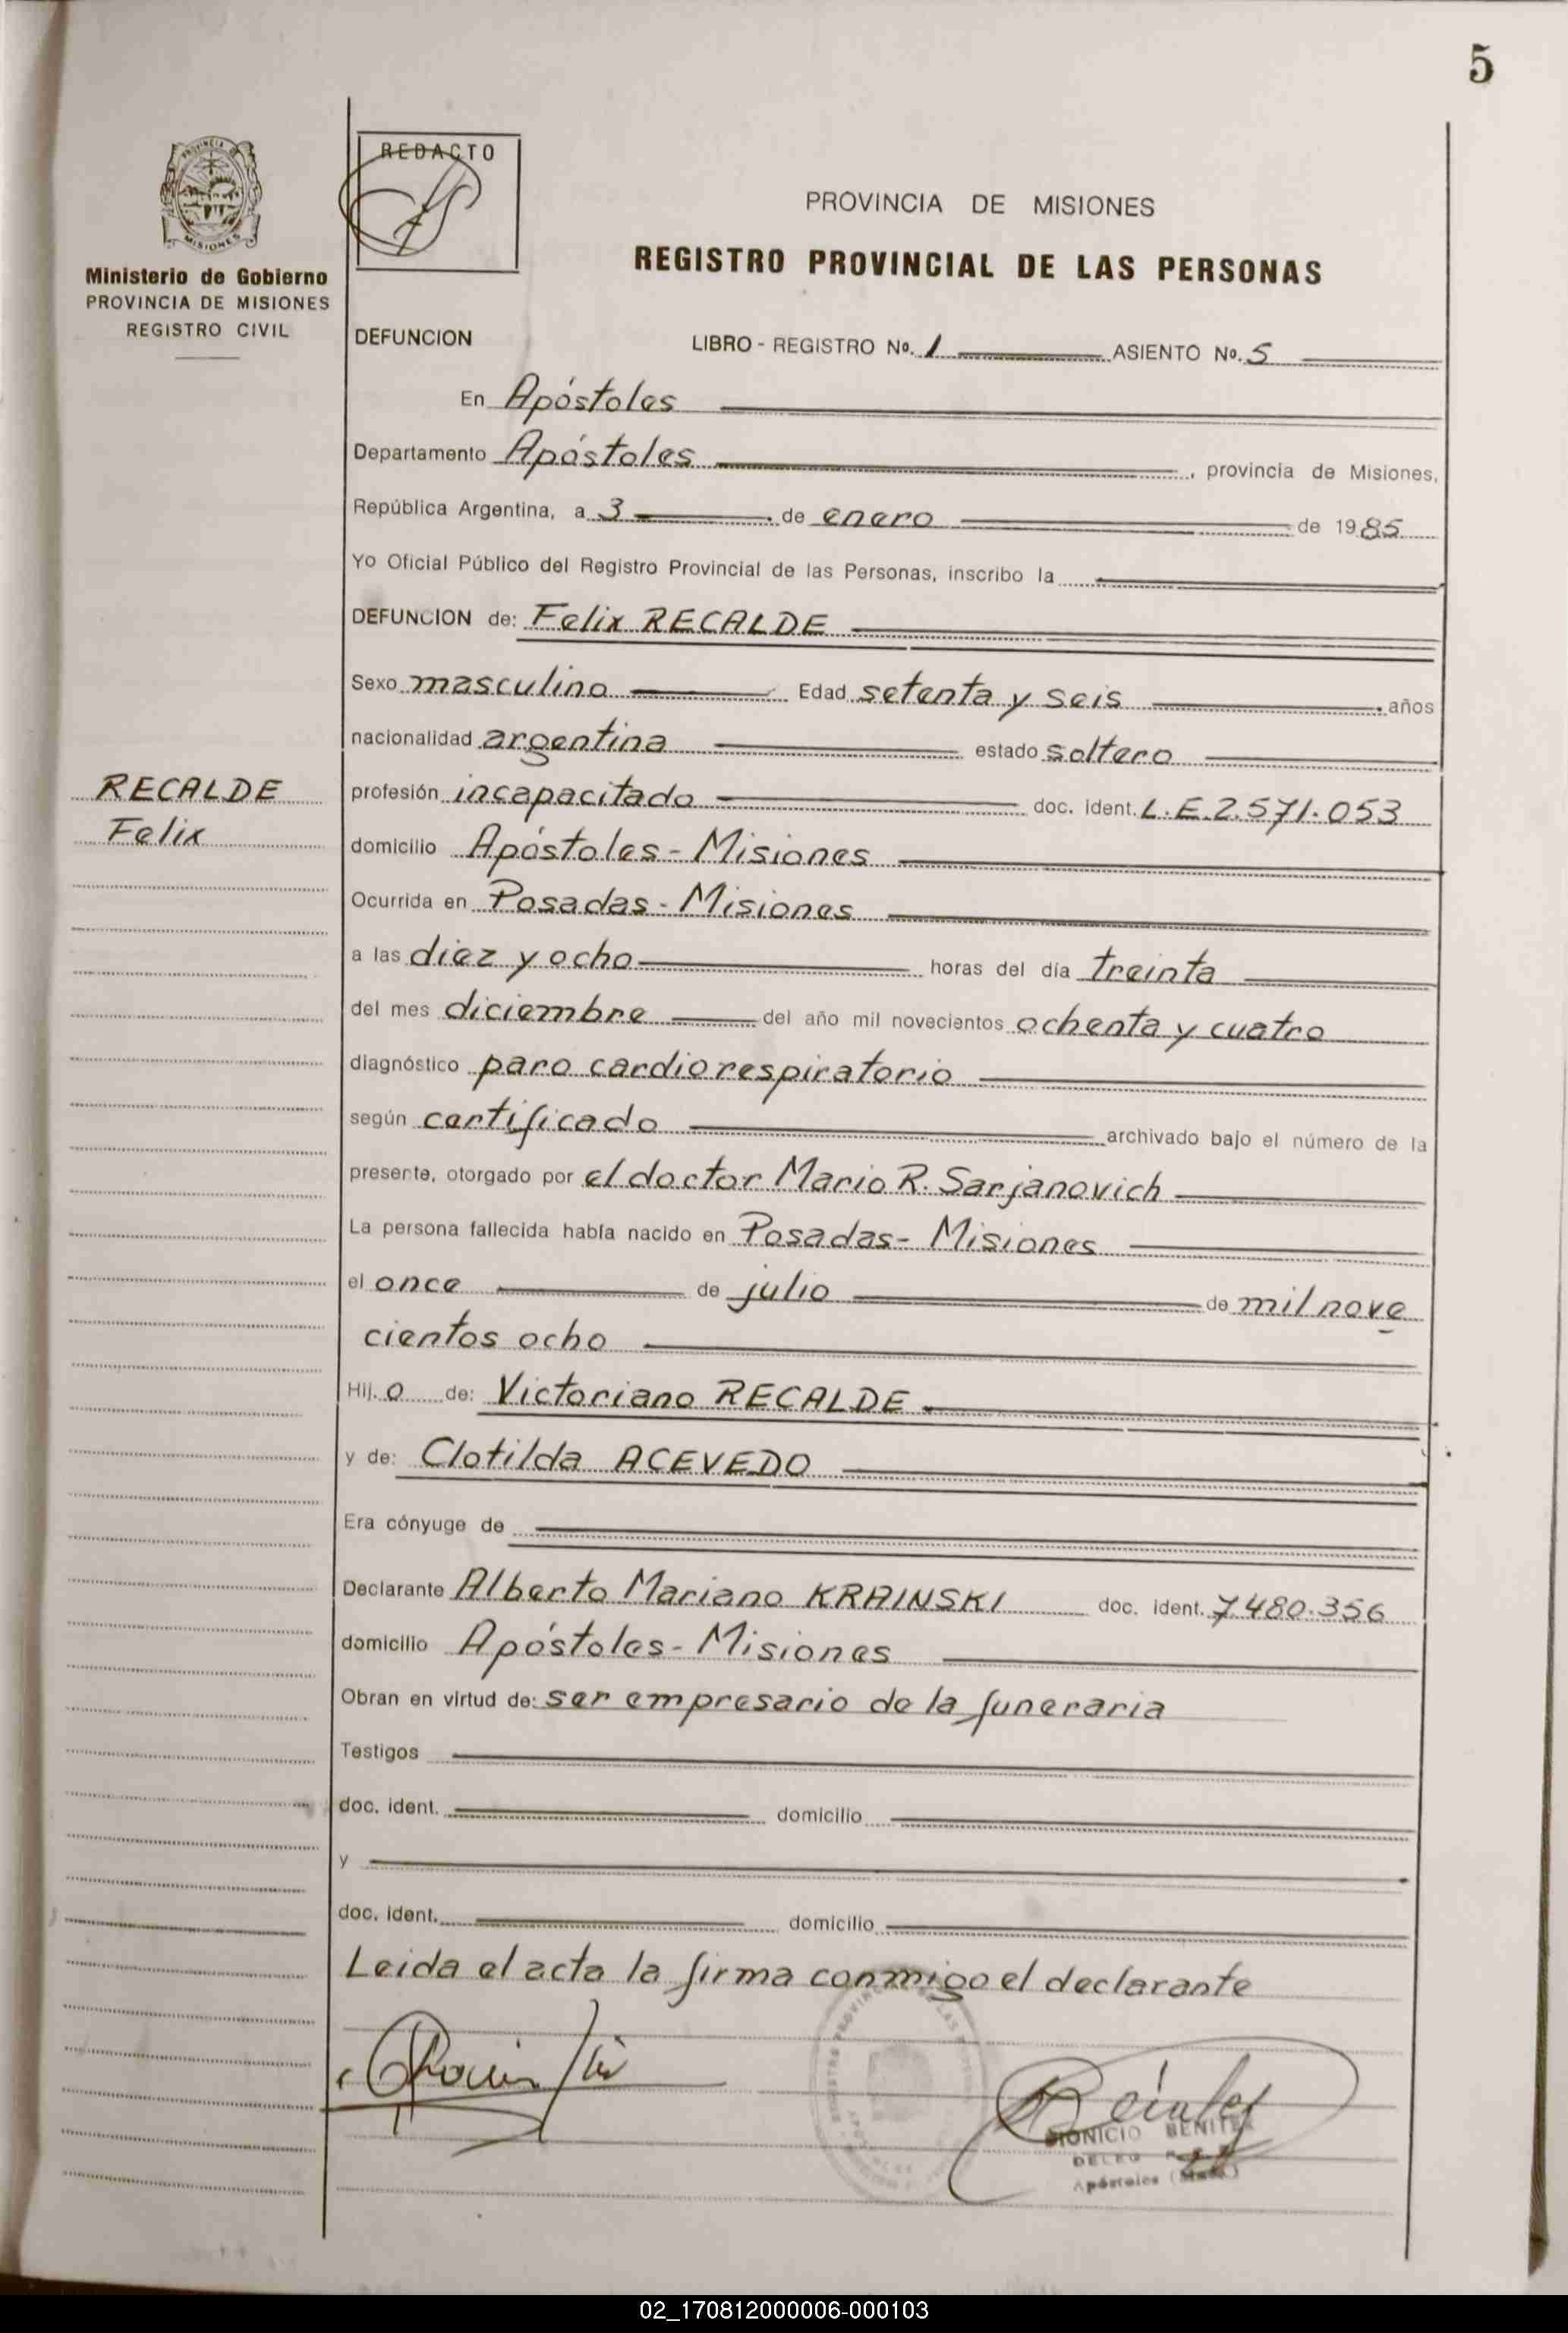 5
REDACTO
PROVINCIA DE MISIONES
REGISTRO PROVINCIAL DE LAS PERSONAS
Ministerio de Gobierno
PROVINCIA DE MISIONES
REGISTRO CIVIL
DEFUNCION LIBRO - REGISTRO Nº. 1 ASIENTO Nº. 5
En Apóstoles
Departamento Apóstoles, provincia de Misiones,
República Argentina, a 3 de enero de 1985
Yo Oficial Público del Registro Provincial de las Personas, inscribo la
DEFUNCION de: Felix RECALDE
Sexo masculino Edad setenta y seis años
nacionalidad argentina estado soltero
RECALDE
Felix
profesión incapacitado doc. ident. L.E.2.571.053
domicilio Apóstoles - Misiones
Ocurrida en Posadas - Misiones
a las diez y ocho horas del día treinta
del mes diciembre del año mil novecientos ochenta y cuatro
diagnóstico paro cardiorespiratorio
según certificado archivado bajo el número de la
presente, otorgado por el doctor Mario R. Sarjanovich
La persona fallecida había nacido en Posadas - Misiones
el once de julio de mil nove
cientos ocho
Hij.o de: Victoriano RECALDE
y de: Clotilda ACEVEDO
Era cónyuge de
Declarante Alberto Mariano KRAINSKI doc. ident. 7.480.356
domicilio Apóstoles - Misiones
Obran en virtud de: ser empresario de la funeraria
Testigos
doc. ident. domicilio
y
doc. ident. domicilio
Leida el acta la firma conmigo el declarante
DIONICIO BENITEZ
Apóstoles
02_170812000006-000103